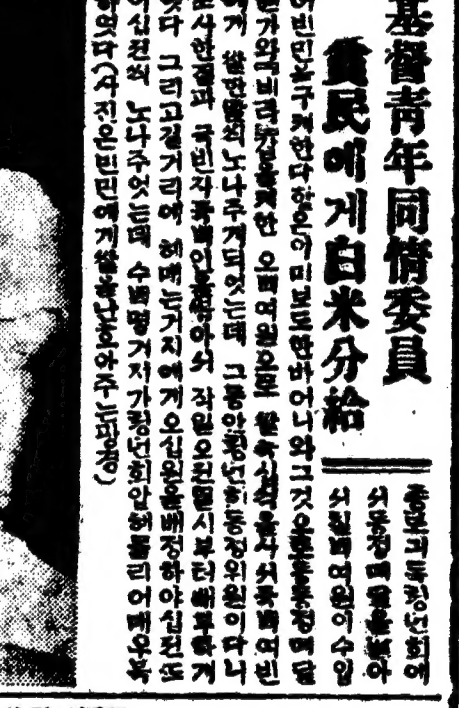 基督靑年同情委員
貧民에게白米分給
종로긔독청년회에
서동정메달을팔아
서칠백여원의수입
빈민을구제한다함은이미보도한바어니와그것으로동정메달
오백여원으로 쌀육십석을사서륙백여빈
에게 쌀한말씩노나주게되엿는데 그동안청년회동정위원이다니
조사한결과 극빈자륙백인을뽑아서 작일오전열시부터배부하게
엇다 그리고길거리에 헤매는거지에게오십원을배정하야십전또
이십전씩 노나주엇는데 수백명거지가청년회압헤몰리어매우복
하엿다(사진은빈민에게쌀을난호아주는광경)